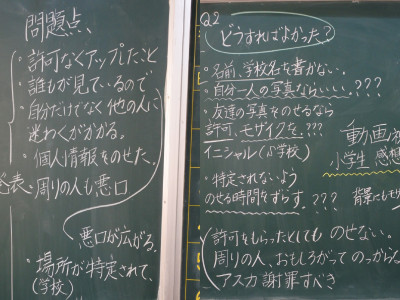 問題点、
・許可なくアップしたこと
誰もが見ているので
・自分だけでなく他の人に
迷わくがかかる。
・個人情報をのせた。
発表 周りの人も悪口
悪口が広がる。
・場所が特定されて、
(学校)
Q2
どうすればよかった？
・名前、学校名を書かない。
・自分一人の写真ならいい。???
・友達の写真をのせるなら
許可、モザイクを。???
イニシャル(小学校)
・特定されないよう
のせる時間をずらす。???
動画
小学生 感想
背景にもモザ
許可をもらったとしても のせない。
周りの人、おもしろがって のっからな
アスカ 謝罪すべき